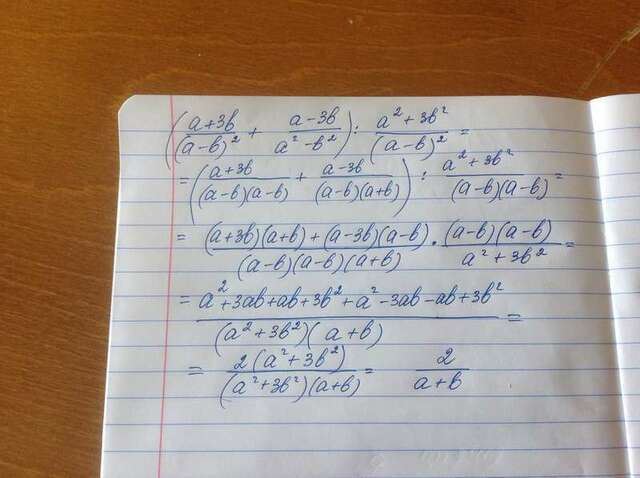 ((a+3b)/(a-b)² + (a-3b)/(a²-b²)) : (a²+3b²)/(a-b)² =
= ((a+3b)/((a-b)(a-b)) + (a-3b)/((a-b)(a+b))) : (a²+3b²)/((a-b)(a-b)) =
= ((a+3b)(a+b)+(a-3b)(a-b))/((a-b)(a-b)(a+b)) · ((a-b)(a-b))/(a²+3b²) =
= (a²+3ab+ab+3b²+a²-3ab-ab+3b²)/((a²+3b²)(a+b)) =
= (2(a²+3b²))/((a²+3b²)(a+b)) = 2/(a+b)